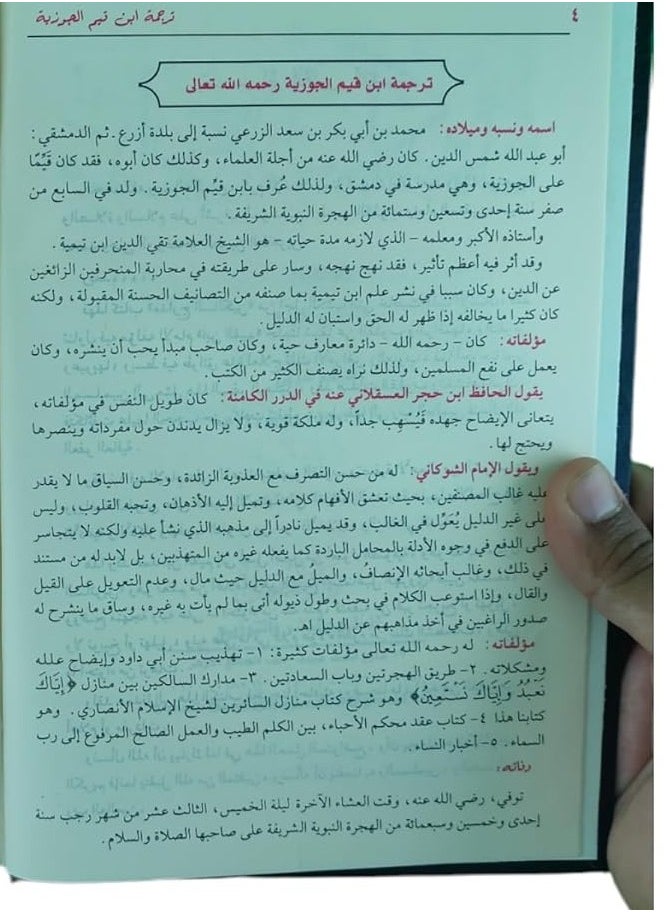 ٤ ترجمة ابن قيم الجوزية
ترجمة ابن قيم الجوزية رحمه الله تعالى
اسمه ونسبه وميلاده: محمد بن أبي بكر بن سعد الزرعي نسبة إلى بلدة أزرع. ثم الدمشقي:
أبو عبد الله شمس الدين. كان رضي الله عنه من أجلة العلماء، وكذلك كان أبوه، فقد كان قَيِّمًا
على الجوزية، وهي مدرسة في دمشق، ولذلك عُرف بابن قيِّم الجوزية. ولد في السابع من
صفر سنة إحدى وتسعين وستمائة من الهجرة النبوية الشريفة.
وأستاذه الأكبر ومعلمه – الذي لازمه مدة حياته – هو الشيخ العلامة تقي الدين ابن تيمية.
وقد أثر فيه أعظم تأثير، فقد نهج نهجه، وسار على طريقته في محاربة المنحرفين الزائغين
عن الدين، وكان سببا في نشر علم ابن تيمية بما صنفه من التصانيف الحسنة المقبولة، ولكنه
كان كثيرا ما يخالفه إذا ظهر له الحق واستبان له الدليل.
مؤلفاته: كان – رحمه الله – دائرة معارف حية، وكان صاحب مبدأ يحب أن ينشره، وكان
يعمل على نفع المسلمين، ولذلك نراه يصنف الكثير من الكتب.
يقول الحافظ ابن حجر العسقلاني عنه في الدرر الكامنة: كان طويل النفس في مؤلفاته،
يتعانى الإيضاح جهده فَيُسْهِب جداً، وله ملكة قوية، ولا يزال يدندن حول مفرداته وينصرها
ويحتج لها.
ويقول الإمام الشوكاني: له من حسن التصرف مع العذوبة الزائدة، وحسن السياق ما لا يقدر
عليه غالب المصنفين، بحيث تعشق الأفهام كلامه، وتميل إليه الأذهان، وتحبه القلوب، وليس
على غير الدليل يُعَوِّل في الغالب، وقد يميل نادراً إلى مذهبه الذي نشأ عليه ولكنه لا يتجاسر
على الدفع في وجوه الأدلة بالمحامل الباردة كما يفعله غيره من المتهذبين، بل لابد له من مستند
في ذلك، وغالب أبحاثه الإنصافُ، والميلُ مع الدليل حيث مال، وعدم التعويل على القيل
والقال، وإذا استوعب الكلام في بحث وطول ذيوله أتى بما لم يأت به غيره، وساق ما ينشرح له
صدور الراغبين في أخذ مذاهبهم عن الدليل اهـ.
مؤلفاته: له رحمه الله تعالى مؤلفات كثيرة: ١- تهذيب سنن أبي داود وإيضاح علله
ومشكلاته. ٢- طريق الهجرتين وباب السعادتين. ٣- مدارك السالكين بين منازل ﴿إِيَّاكَ
نَعْبُدُ وَإِيَّاكَ نَسْتَعِينُ﴾ وهو شرح كتاب منازل السائرين لشيخ الإسلام الأنصاري. وهو
كتابنا هذا ٤- كتاب عقد محكم الأحباء، بين الكلم الطيب والعمل الصالح المرفوع إلى رب
السماء. ٥- أخبار النساء.
وفاته:
توفي، رضي الله عنه، وقت العشاء الآخرة ليلة الخميس، الثالث عشر من شهر رجب سنة
إحدى وخمسين وسبعمائة من الهجرة النبوية الشريفة على صاحبها الصلاة والسلام.